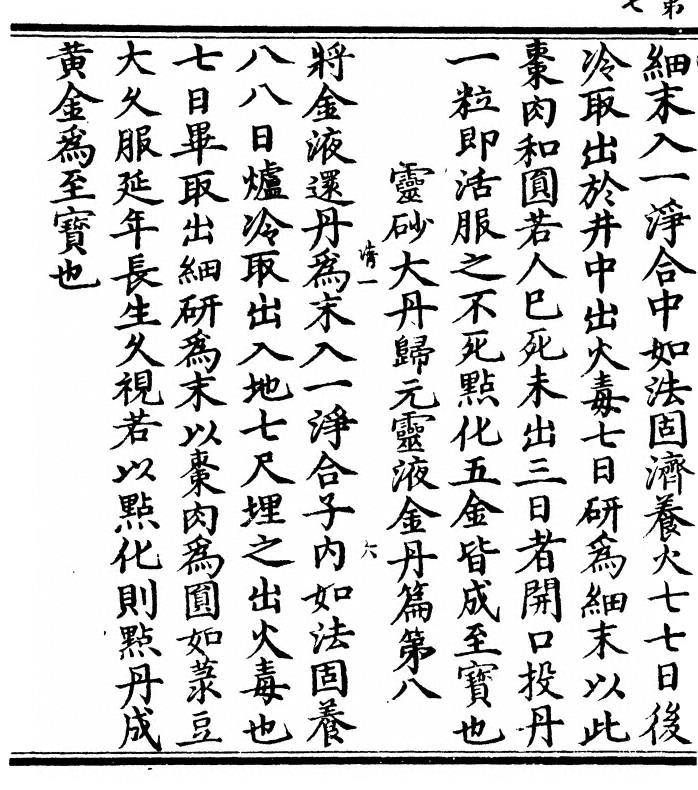 第
七
細末入一淨合中如法固濟養火七七日後
冷取出於井中出火毒七日研爲細末以此
棗肉和圓若人已死未出三日者開口投丹
一粒即活服之不死點化五金皆成至寶也
靈砂大丹歸元靈液金丹篇第八
清一
六
將金液還丹爲末入一淨合子内如法固養
八八日爐冷取出入地七尺埋之出火毒也
七日畢取出細研爲末以棗肉爲圓如菉豆
大久服延年長生久視若以點化則點丹成
黃金爲至寶也